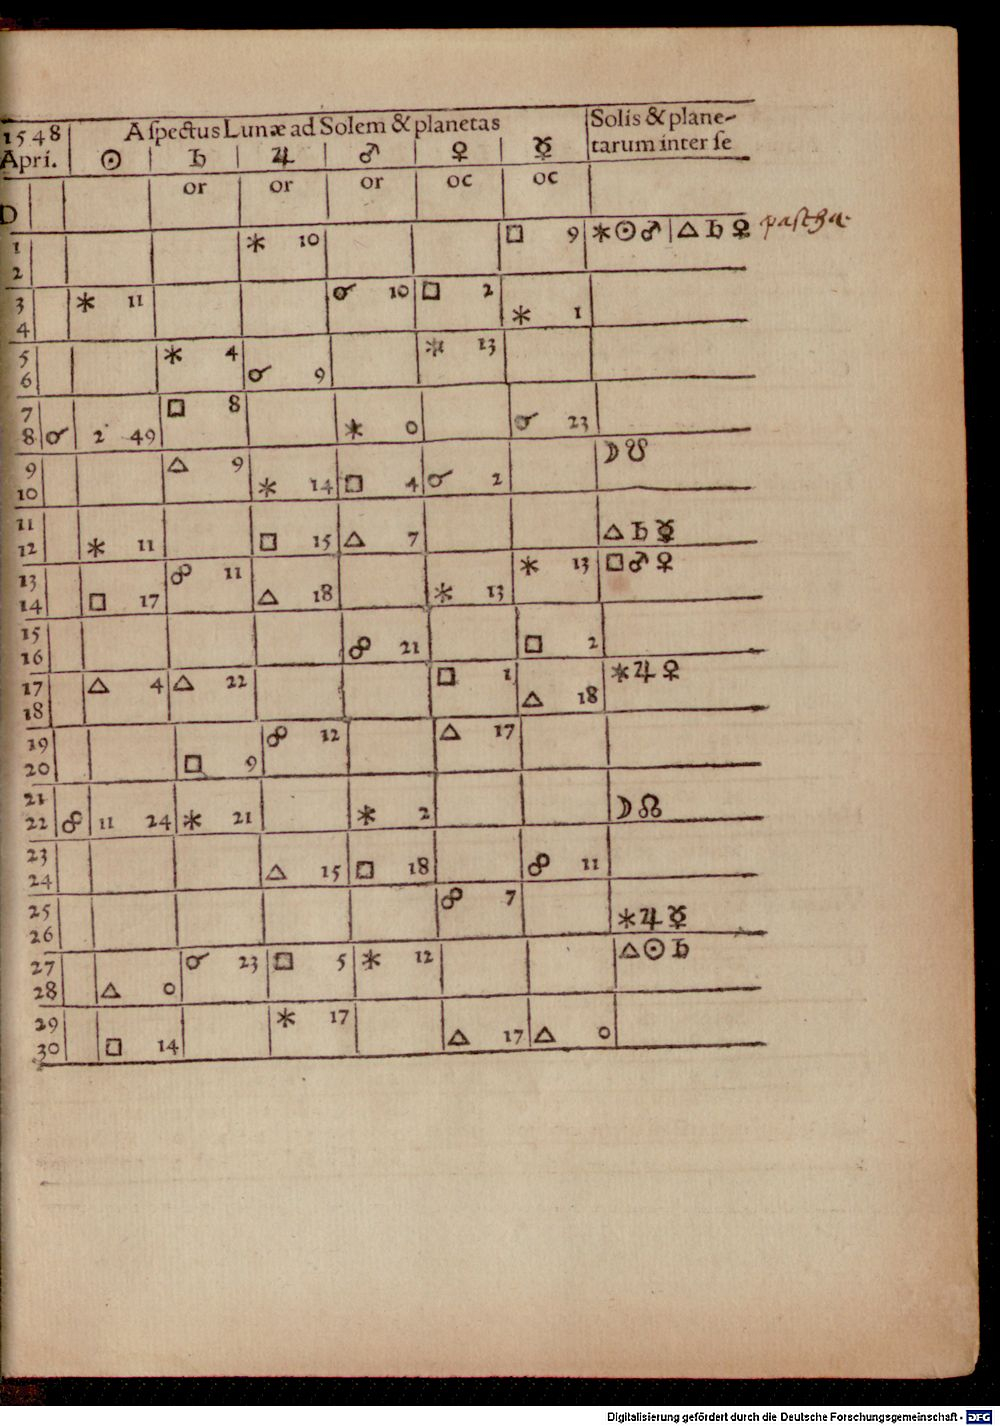 1548 | Aspectus Lunæ ad Solem & planetas | Solis & plane-
Apri. | ☉ | ♄ | ♃ | ♂ | ♀ | ☿ | tarum inter se
D | | or | or | or | oc | oc
1 | | | ⚹ 10 | | | □ 9 | ⚹☉♂ | △♄♀ pascha
2
3 | ⚹ 11 | | | ☌ 10 | □ 2 |
4 | | | | | | ⚹ 1
5 | | ⚹ 4 | | | ⚹ 13 |
6 | | | ☌ 9
7 | | □ 8
8 ☌ | 2 49 | | | ⚹ 0 | | ☌ 23
9 | | △ 9 | | | | | ☽☋
10 | | | ⚹ 14 | □ 4 | ☌ 2
11
12 | ⚹ 11 | | □ 15 | △ 7 | | | △♄☿
13 | | ☍ 11 | | | | ⚹ 13 | □♂♀
14 | □ 17 | | △ 18 | | ⚹ 13
15
16 | | | | ☍ 21 | | □ 2
17 | △ 4 | △ 22 | | | □ 1 | | ⚹♃♀
18 | | | | | | △ 18
19 | | | ☍ 12 | | △ 17
20 | | □ 9
21
22 ☍ | 11 24 | ⚹ 21 | | ⚹ 2 | | | ☽☊
23
24 | | | △ 15 | □ 18 | | ☍ 11
25 | | | | | ☍ 7
26 | | | | | | | ⚹♃☿
27 | | ☌ 23 | □ 5 | ⚹ 12 | | | △☉♄
28 | △ 0
29 | | | ⚹ 17
30 | □ 14 | | | | △ 17 | △ 0
Digitalisierung gefördert durch die Deutsche Forschungsgemeinschaft - DFG